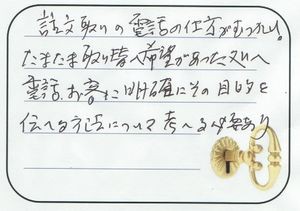 注文取りの電話の仕方がむつかしい。
たまたま取り替え希望があった処へ
電話、お客に明確にその目的を
伝へる方法について考へる必要あり